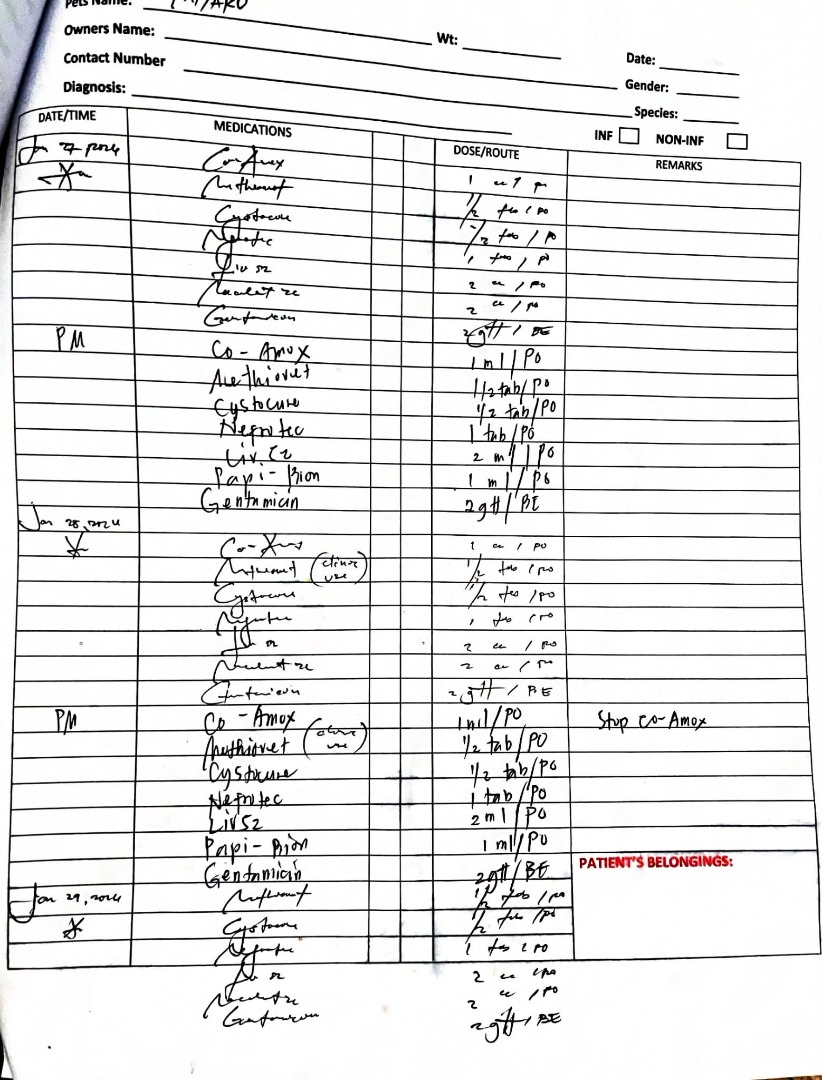 Pets Name:
Owners Name: Wt:
Contact Number Date:
Diagnosis: Gender:
Species:
INF NON-INF
DATE/TIME MEDICATIONS DOSE/ROUTE REMARKS
Jan 27 2024 Co-Amox
1/2 tab / PO
Cystocure 1/2 tab / PO
1 tab / PO
Liv 52 2 cc / PO
2 cc / PO
Gentamicin 2gtt / BE
PM Co - Amox 1 ml / PO
Methiovet 1/2 tab / PO
Cystocure 1/2 tab / PO
Nefrotec 1 tab / PO
Liv. 52 2 ml / PO
Papi - Bion 1 ml / PO
Gentamicin 2gtt / BE
Jan 28, 2024
Co-Amox 1 cc / PO
(clinic use) 1/2 tab / PO
Cystocure 1/2 tab / PO
1 tab / PO
52 2 cc / PO
2 cc / PO
Gentamicin 2gtt / BE
PM Co - Amox 1 ml / PO Stop Co-Amox
Methiovet (clinic use) 1/2 tab / PO
Cystocure 1/2 tab / PO
Nefrotec 1 tab / PO
Liv52 2 ml / PO
Papi - Bion 1 ml / PO
Gentamicin 2gtt / BE
PATIENT'S BELONGINGS:
Jan 29, 2024 1/2 tab / PO
Cystocure 1/2 tab / PO
1 tab / PO
52 2 cc / PO
2 cc / PO
Gentamicin 2gtt / BE